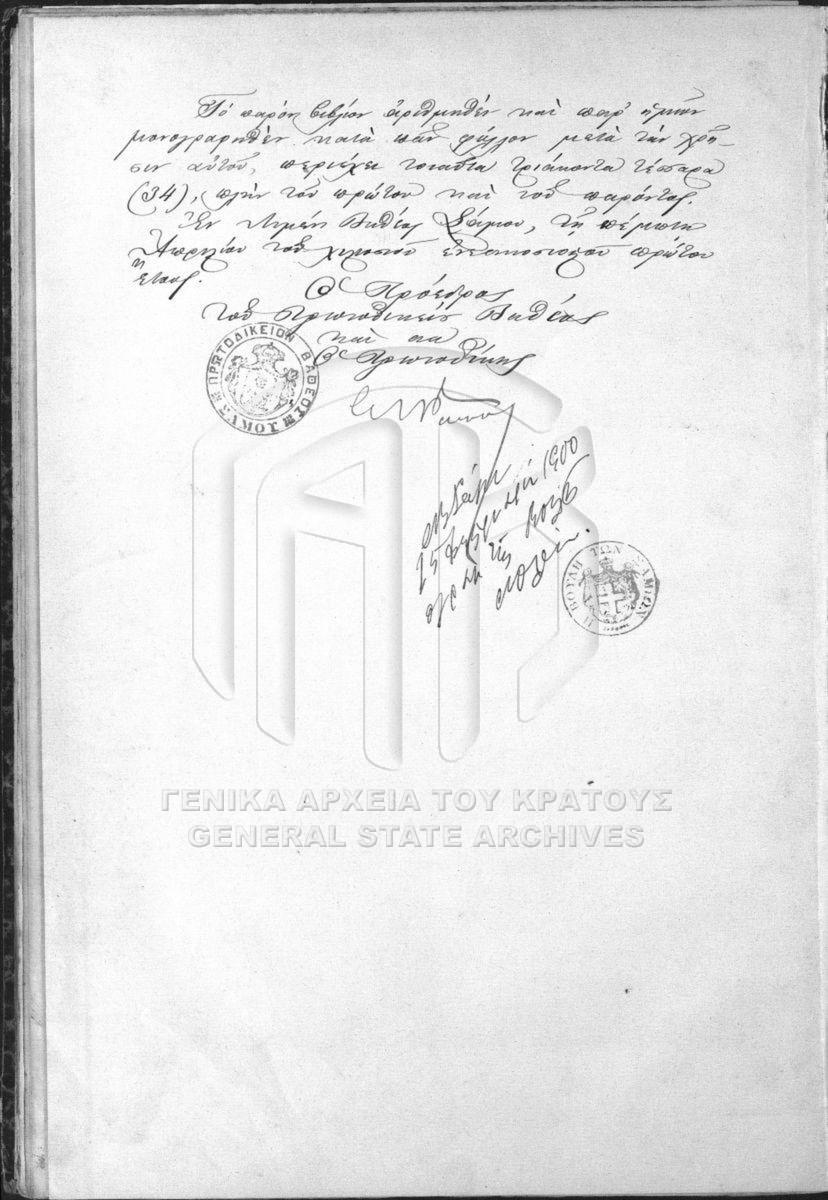 Τό παρόν βιβλίον ἀριθμηθέν καί παρ' ἡμῶν
μονογραφηθέν κατά πᾶν φύλλον μετά τήν χρῆ-
σιν αὐτοῦ, περιέχει τοιαῦτα τριάκοντα τέσσαρα
(34), πλήν τοῦ πρώτου καί τοῦ παρόντος.
Ἐν Λιμένι Βαθέος Σάμου, τῇ πέμπτῃ
Ἀπριλίου τοῦ χιλιοστοῦ ἐνεακοσιοστοῦ πρώτου
ἔτους.
Ὁ Πρόεδρος
τοῦ Πρωτοδικείου Βαθέος
καί
Ὁ Πρωτοδίκης
ΠΡΩΤΟΔΙΚΕΙΟΝ ΒΑΘΕΟΣ
ΣΑΜΟΥ
1900
τῆς
Η ΒΟΥΛΗ ΤΩΝ ΣΑΜΙΩΝ
ΓΕΝΙΚΑ ΑΡΧΕΙΑ ΤΟΥ ΚΡΑΤΟΥΣ
GENERAL STATE ARCHIVES